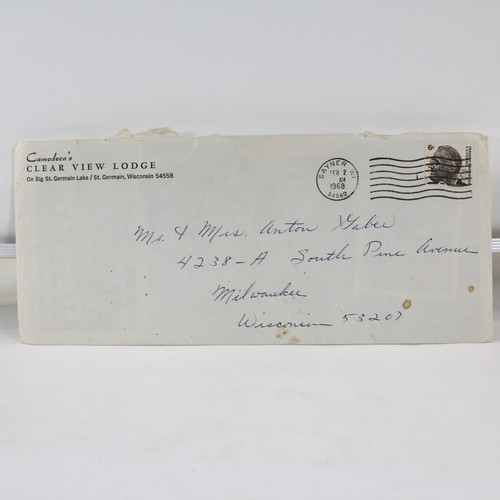 Camodeca's
CLEAR VIEW LODGE
On Big St. Germain Lake / St. Germain, Wisconsin 54558
SAYNER WI
FEB 2
AM
1968
54560
6¢
Mr. & Mrs. Anton Gaber
4238-A South Pine Avenue
Milwaukee
Wisconsin 53207